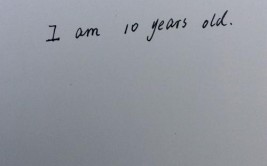 I am 10 years old.